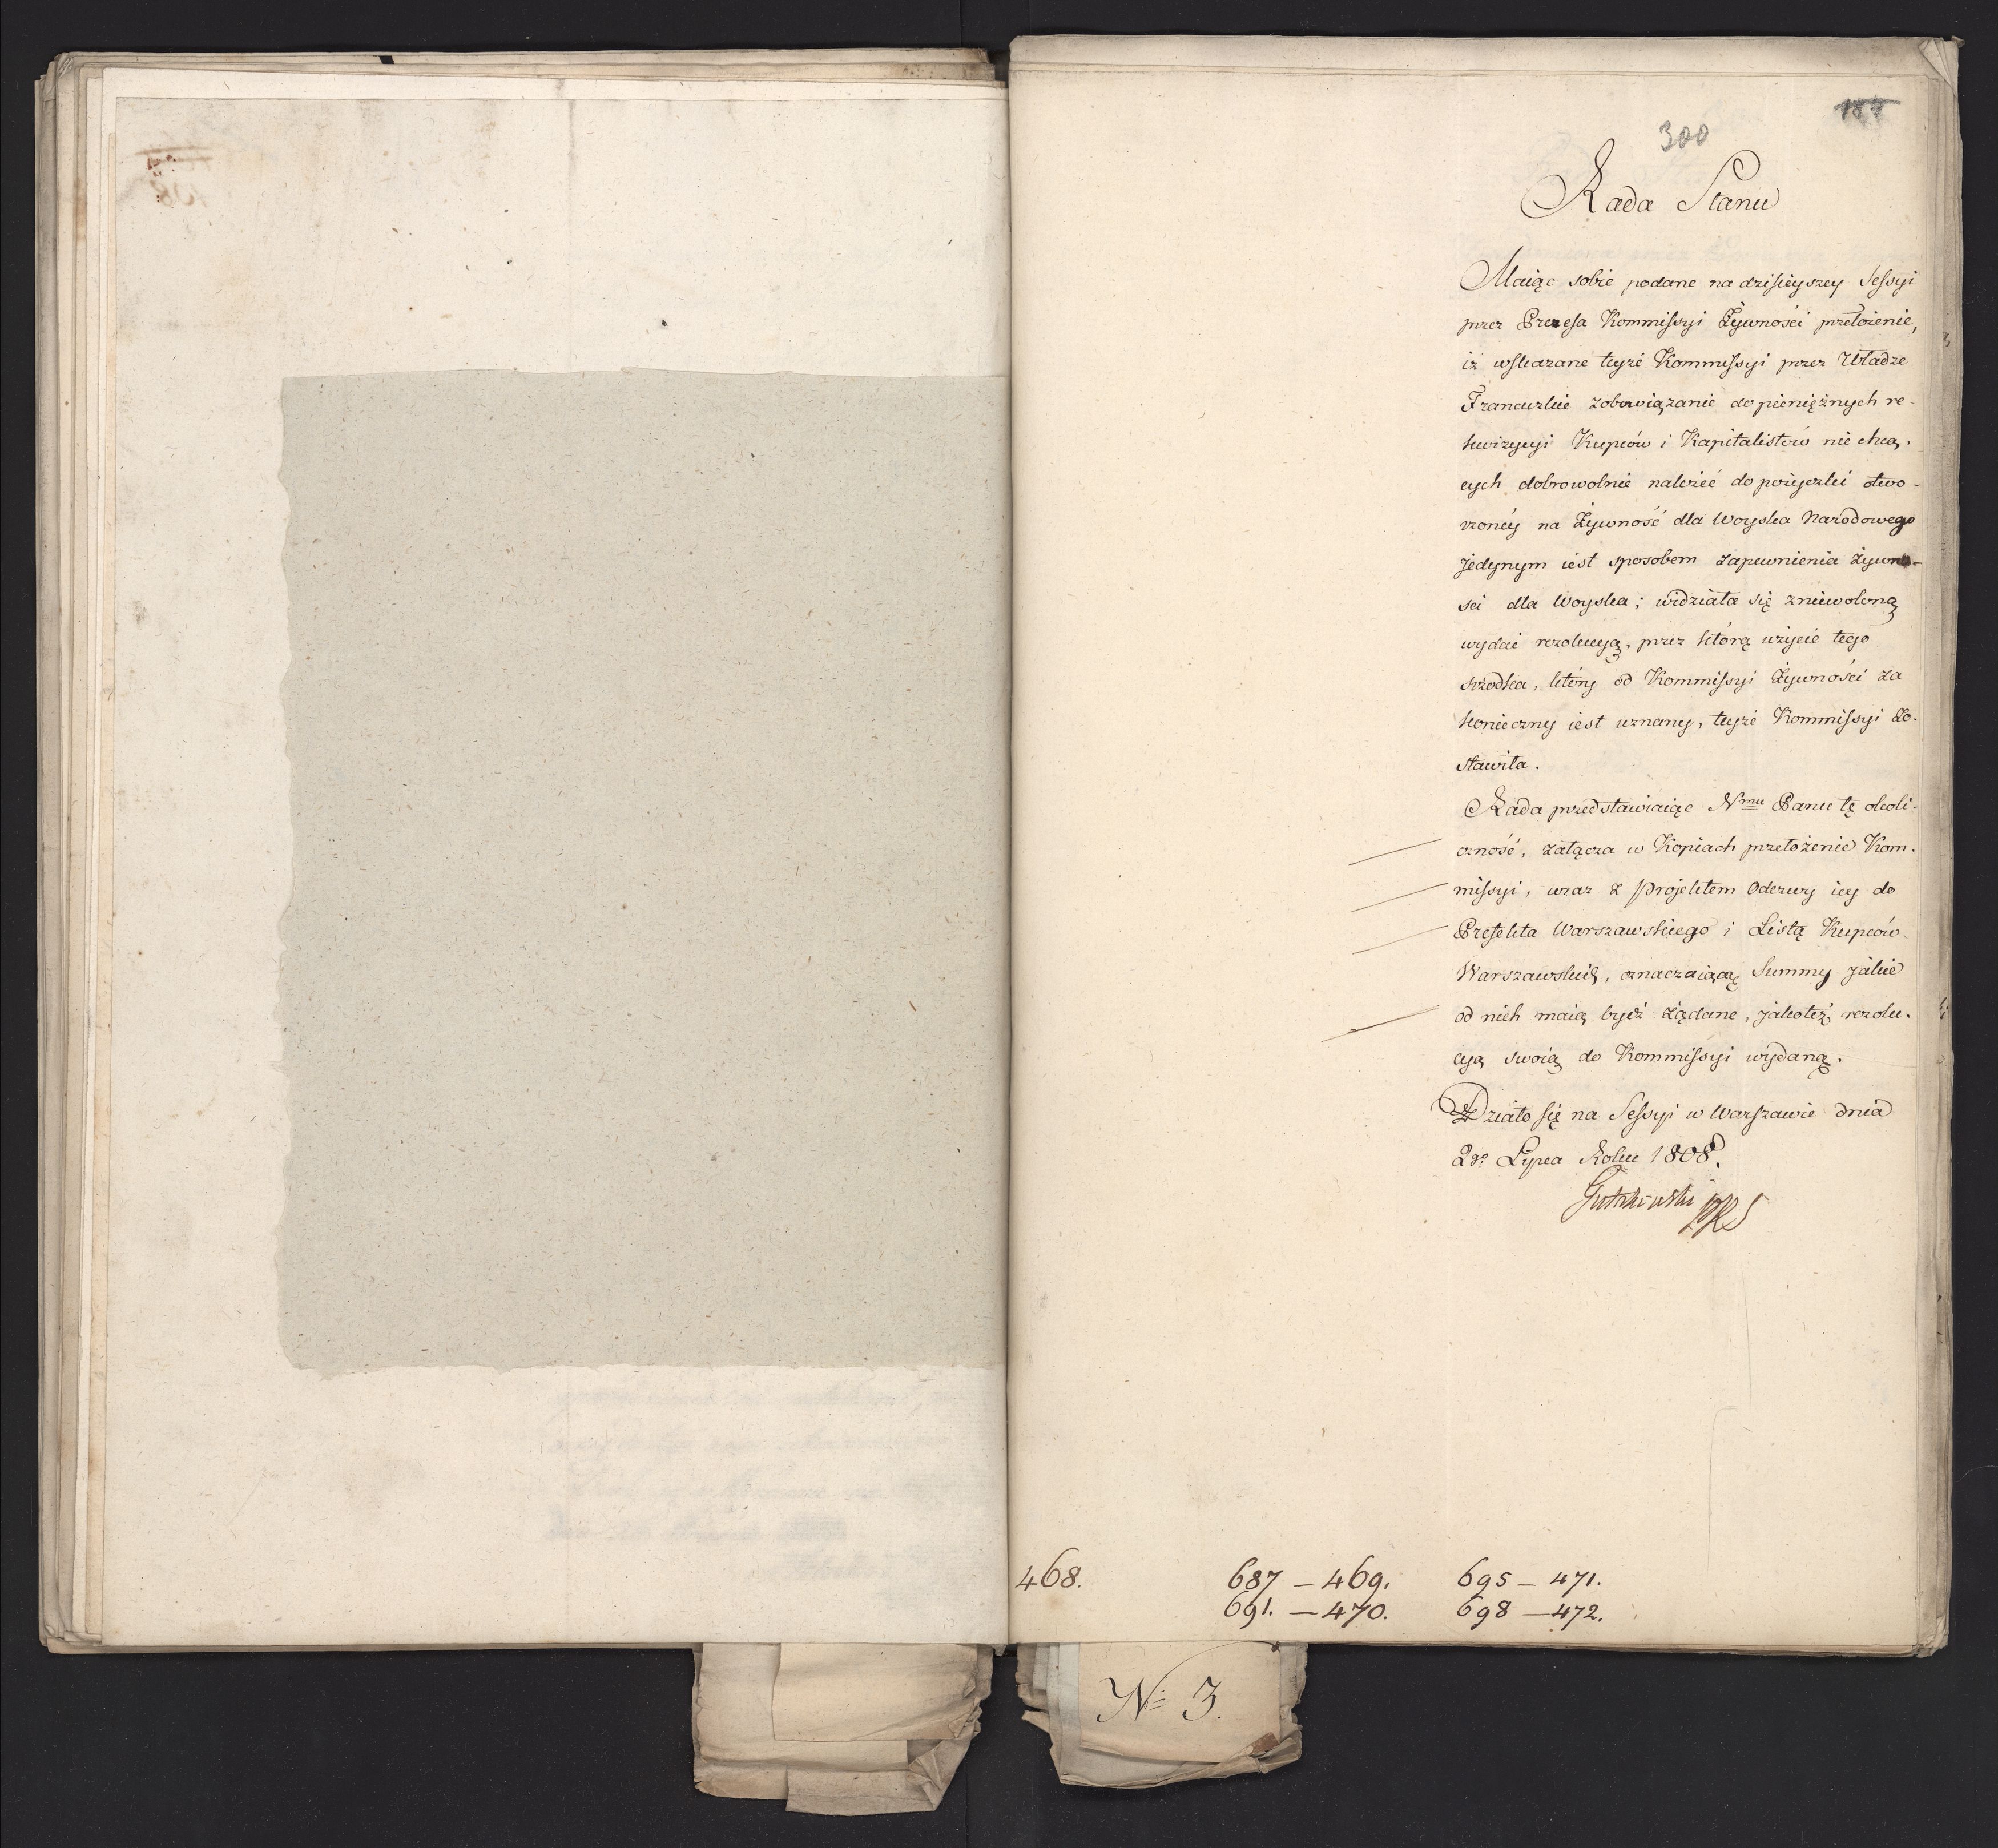 187
300
Rada Stanu
Maiąc sobie podane na dzisieyszey Sessyi
przez Prezesa Kommissyi Żywności przełożenie,
iż wskazane teyże Kommissyi przez Władze
Francuzkie zobowiązanie do pieniężnych re-
kwizycyi Kupców i Kapitalistów nie chcą-
cych dobrowolnie należéć do pożyczki otwo-
rzonéy na Żywność dla Woyska Narodowego
jedynym iest sposobem zapewnienia żywno-
sci dla Woyska; widziała się zniewoloną
wydać rezolucyą, przez którą użycie tego
szrodka, który od Kommissyi Żywności za
konieczny iest uznany, teyże Kommissyi zo-
stawiła.
Rada przedstawiaiąc Nmu Panu tę okoli-
czność, załącza w Kopiach przełożenie Kom-
missyi, wraz z Projektem Odezwy iey do
Prefekta Warszawskiego i Listą Kupców
Warszawskich, oznaczaiącą Summy jakie
od nich maią bydź żądane, jakoteż rezolu-
cyą swoią do Kommissyi wydaną.
Działo się na Sessyi w Warszawie dnia
2go Lipca Roku 1808.
Gutakowski PRS
468. 687 – 469. 695 – 471.
691. – 470. 698 – 472.
No 3.